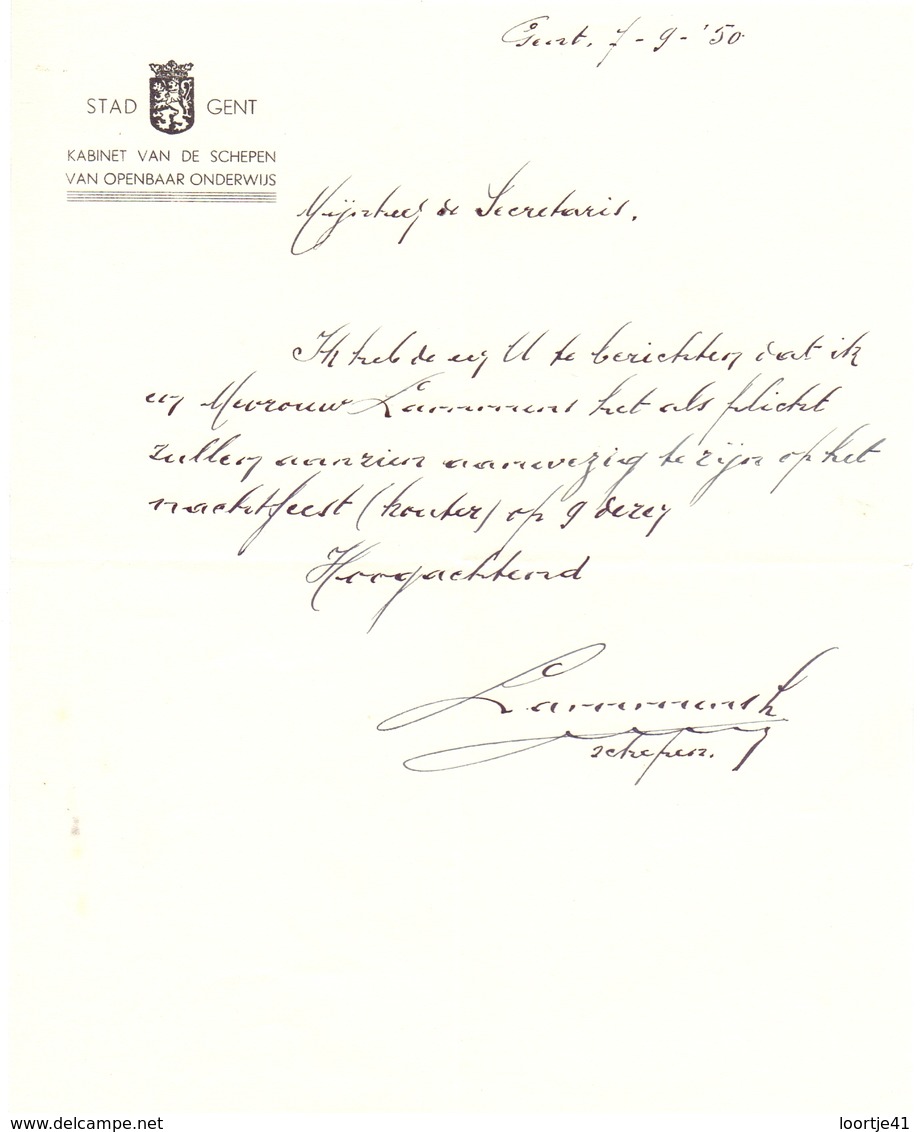 Gent, 7-9-'50
STAD GENT
KABINET VAN DE SCHEPEN
VAN OPENBAAR ONDERWIJS
Mijnheer de Secretaris.
Ik heb de eer U te berichten dat ik
en Mevrouw Lammens het als plicht
zullen aanzien aanwezig te zijn op het
nachtfeest (kouter) op 9 dezer
Hoogachtend
schepen.
delcampe.net
loortje41